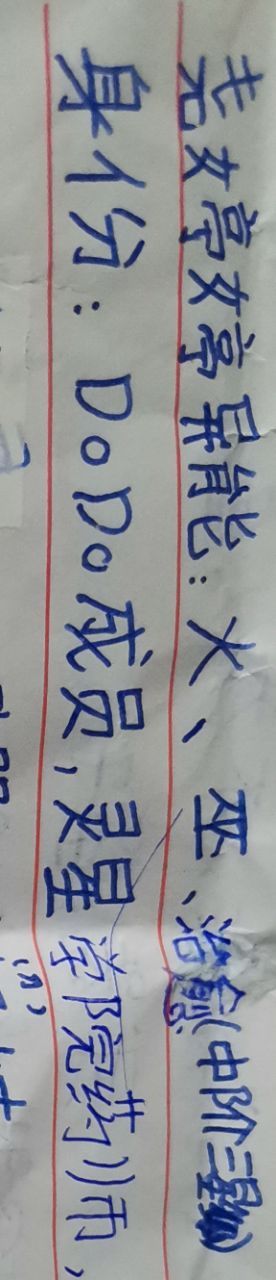 袁婷婷 异能:火、巫、治愈(中阶三级)
身份:DoDo成员,灵星学院药师、